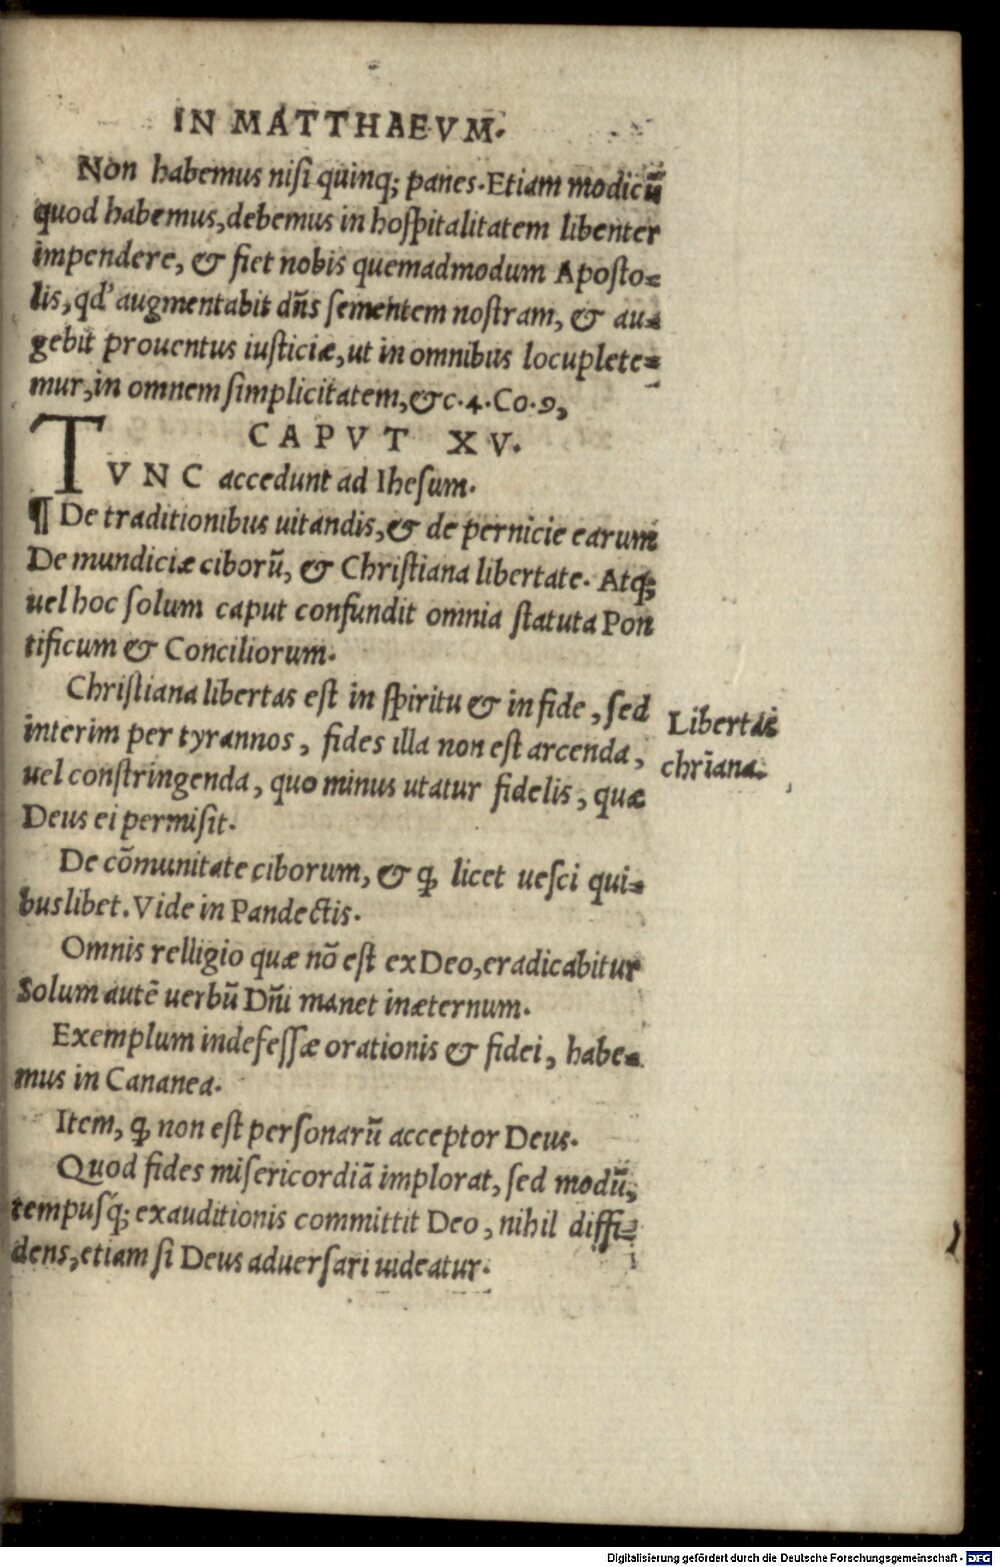 IN MATTHAEVM.
Non habemus nisi quinq; panes. Etiam modicū
quod habemus, debemus in hospitalitatem libenter
impendere, & fiet nobis quemadmodum Aposto=
lis, qd' augmentabit dñs sementem nostram, & au=
gebit prouentus iusticiæ, ut in omnibus locuplete=
mur, in omnem simplicitatem, &c. 4. Co. 9,
CAPVT XV.
TVNC accedunt ad Ihesum.
¶ De traditionibus uitandis, & de pernicie earum
De mundiciæ ciborū, & Christiana libertate. Atq;
uel hoc solum caput confundit omnia statuta Pon
tificum & Conciliorum.
Christiana libertas est in spiritu & in fide, sed
interim per tyrannos, fides illa non est arcenda,
uel constringenda, quo minus utatur fidelis, quæ
Deus ei permisit.
Libertas
chrīana.
De cōmunitate ciborum, & ꝙ licet uesci qui=
buslibet. Vide in Pandectis.
Omnis relligio quæ nō est ex Deo, eradicabitur
Solum autē uerbū Dñi manet inæternum.
Exemplum indefessæ orationis & fidei, habe=
mus in Cananea.
Item, ꝙ non est personarū acceptor Deus.
Quod fides misericordiā implorat, sed modū,
tempusq́; exauditionis committit Deo, nihil diffi=
dens, etiam si Deus aduersari uideatur.
Digitalisierung gefördert durch die Deutsche Forschungsgemeinschaft - DFG